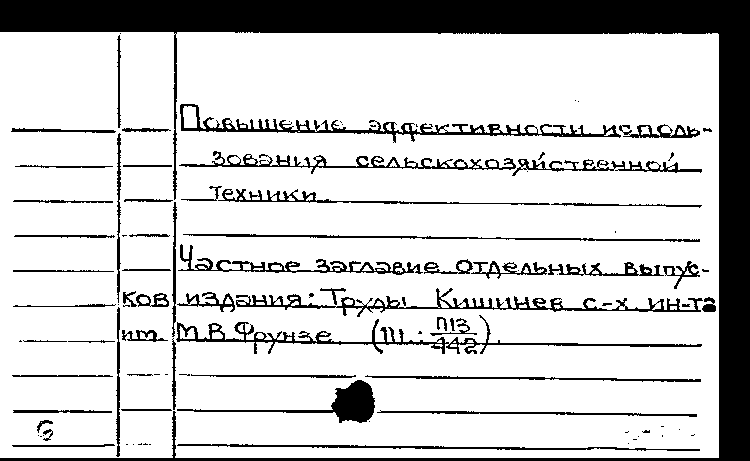 Повышение эффективности исполь-
зования сельскохозяйственной
техники.
Частное заглавие отдельных выпус-
ков издания: Труды Кишинев с.-х ин-та
им. М.В.Фрунзе. (Ш.: П13/442).
6